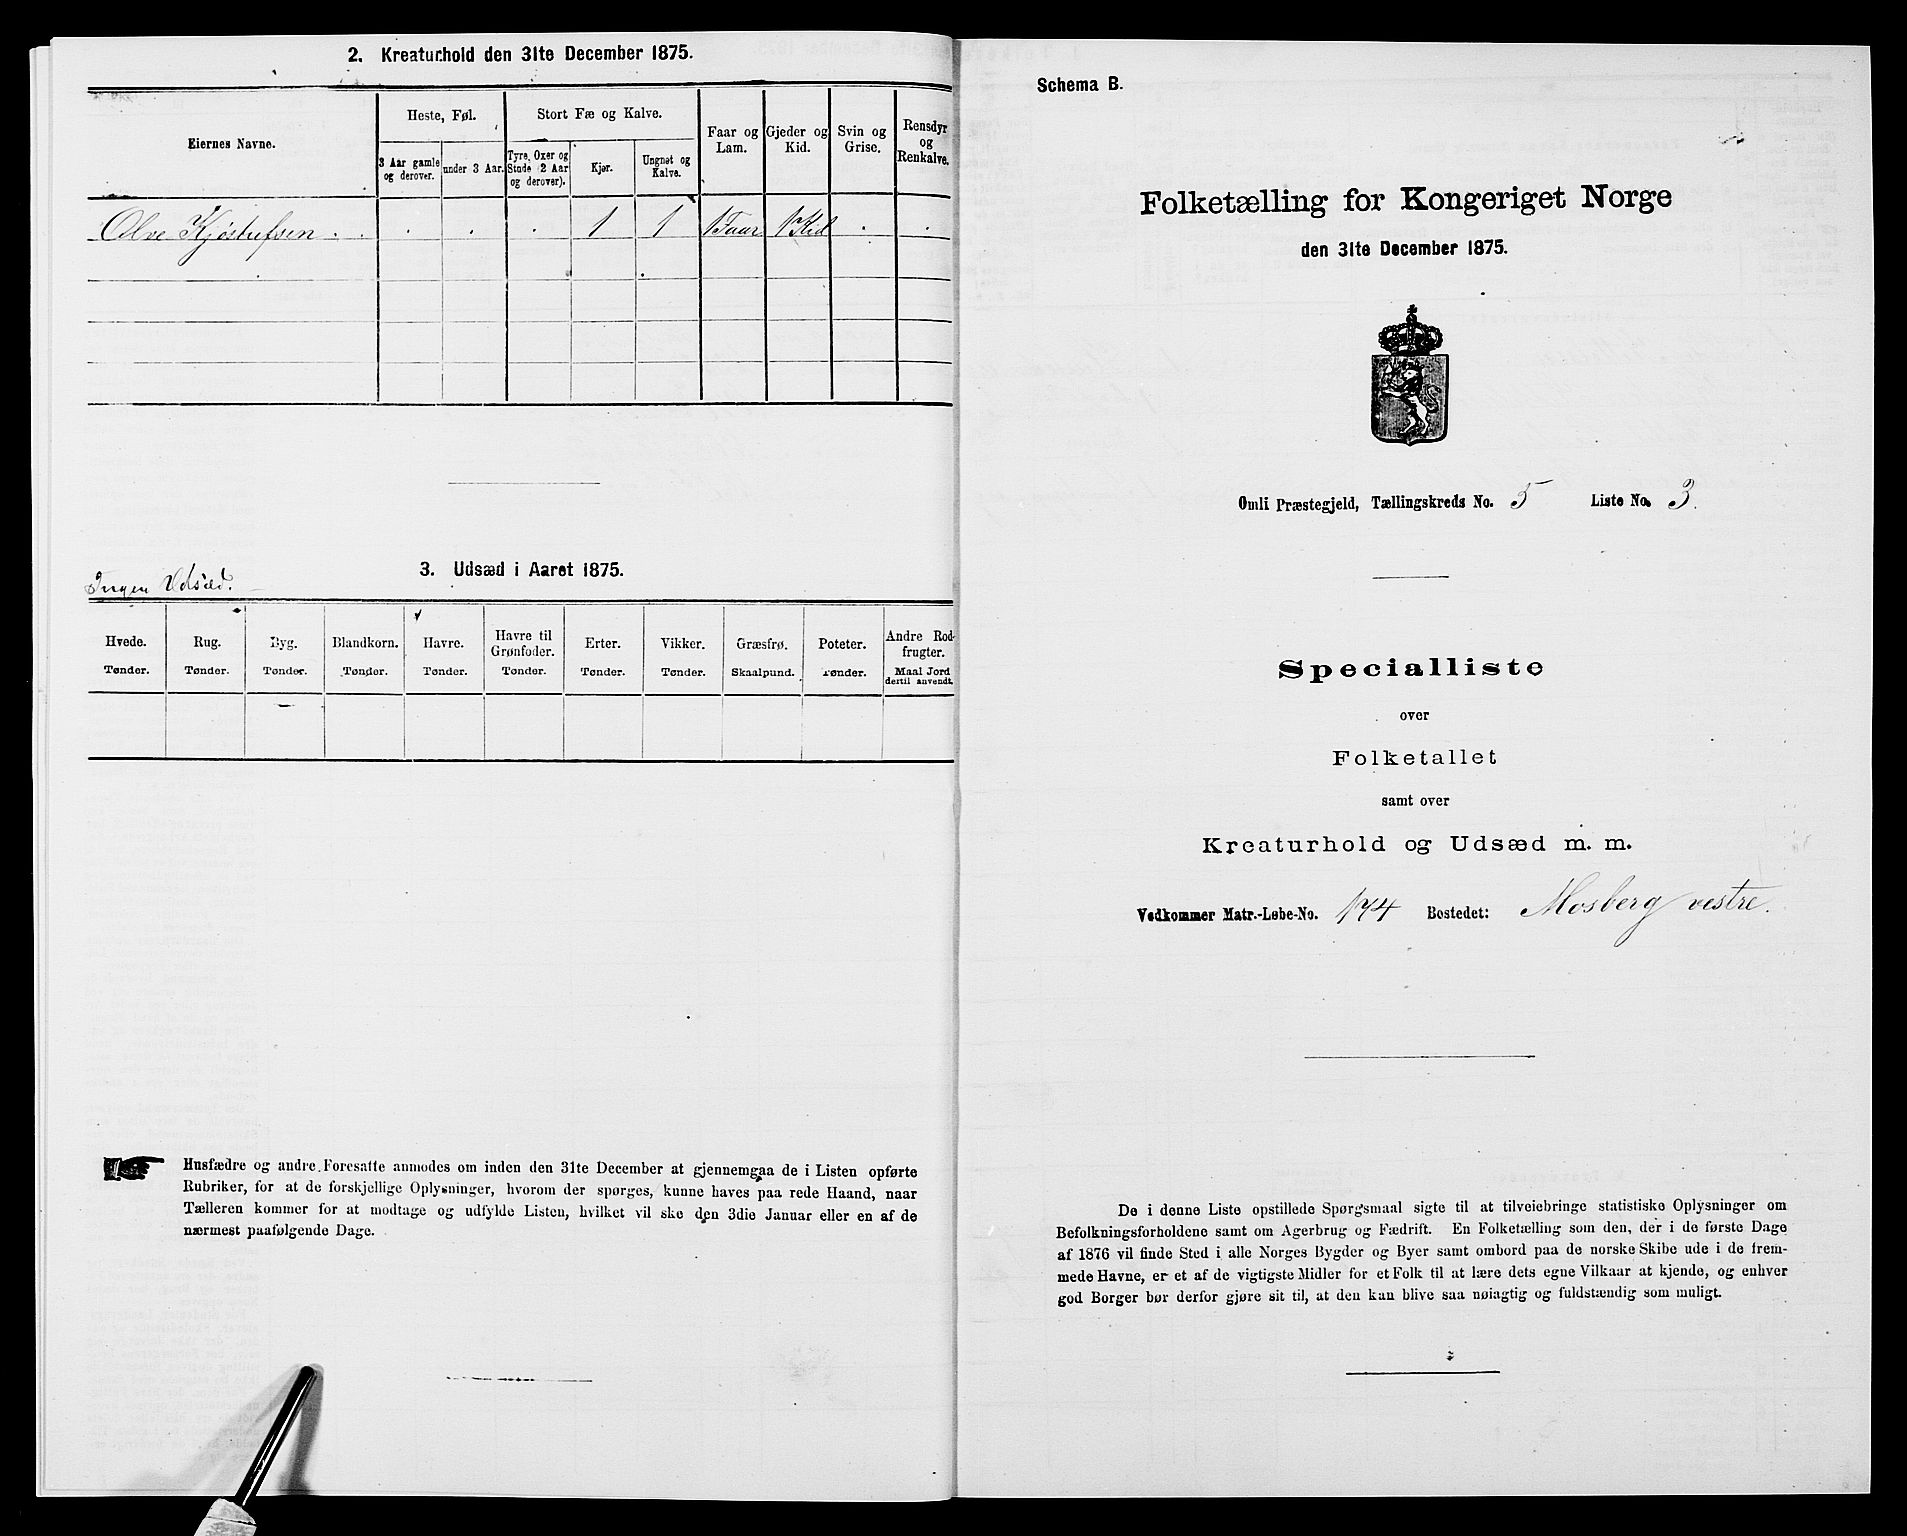 2. Kreaturhold den 31te December 1875.
Eiernes Navne.
Heste, Føl.
Stort Fæ og Kalve.
Faar og Lam.
Gjeder og Kid.
Svin og Grise.
Rensdyr og Renkalve.
3 Aar gamle og derover.
under 3 Aar.
Tyre, Oxer og Stude (2 Aar og derover).
Kjør.
Ungnøt og Kalve.
Olve Kjøstufsen . . . . . 1 1 1 Faar 1 Kid . .
3. Udsæd i Aaret 1875.
Ingen Udsæd.
Hvede. Rug. Byg. Blandkorn. Havre. Havre til Grønfoder. Erter. Vikker. Græsfrø. Poteter. Andre Rodfrugter.
Tønder. Tønder. Tønder. Tønder. Tønder. Tønder. Tønder. Tønder. Skaalpund. Tønder. Maal Jord dertil anvendt.
Husfædre og andre Foresatte anmodes om inden den 31te December at gjennemgaa de i Listen opførte
Rubriker, for at de forskjellige Oplysninger, hvorom der spørges, kunne haves paa rede Haand, naar
Tælleren kommer for at modtage og udfylde Listen, hvilket vil ske den 3die Januar eller en af de
nærmest paafølgende Dage.
Schema B.
Folketælling for Kongeriget Norge
den 31te December 1875.
Omli Præstegjeld, Tællingskreds No. 5 Liste No. 3.
Specialliste
over
Folketallet
samt over
Kreaturhold og Udsæd m. m.
Vedkommer Matr.-Løbe-No. 174 Bostedet: Mosberg vestre.
De i denne Liste opstillede Spørgsmaal sigte til at tilveiebringe statistiske Oplysninger om
Befolkningsforholdene samt om Agerbrug og Fædrift. En Folketælling som den, der i de første Dage
af 1876 vil finde Sted i alle Norges Bygder og Byer samt ombord paa de norske Skibe ude i de frem-
mede Havne, er et af de vigtigste Midler for et Folk til at lære dets egne Vilkaar at kjende, og enhver
god Borger bør derfor gjøre sit til, at den kan blive saa nøiagtig og fuldstændig som muligt.